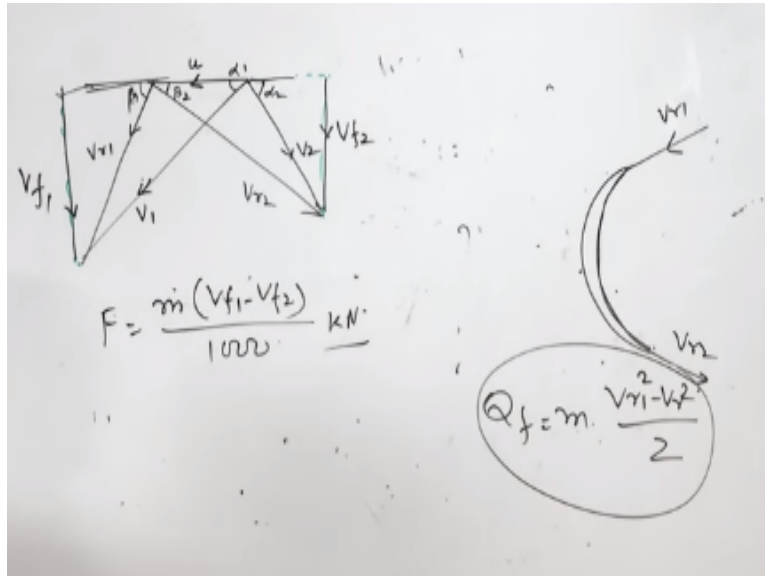 u α1
β1 β2 α2
Vf1 Vr1 V1 Vr2 V2 Vf2
Vr1
F = ṁ (Vf1 - Vf2) / 1000 kN
Vr2
Qf = m. Vr1² - Vr² / 2